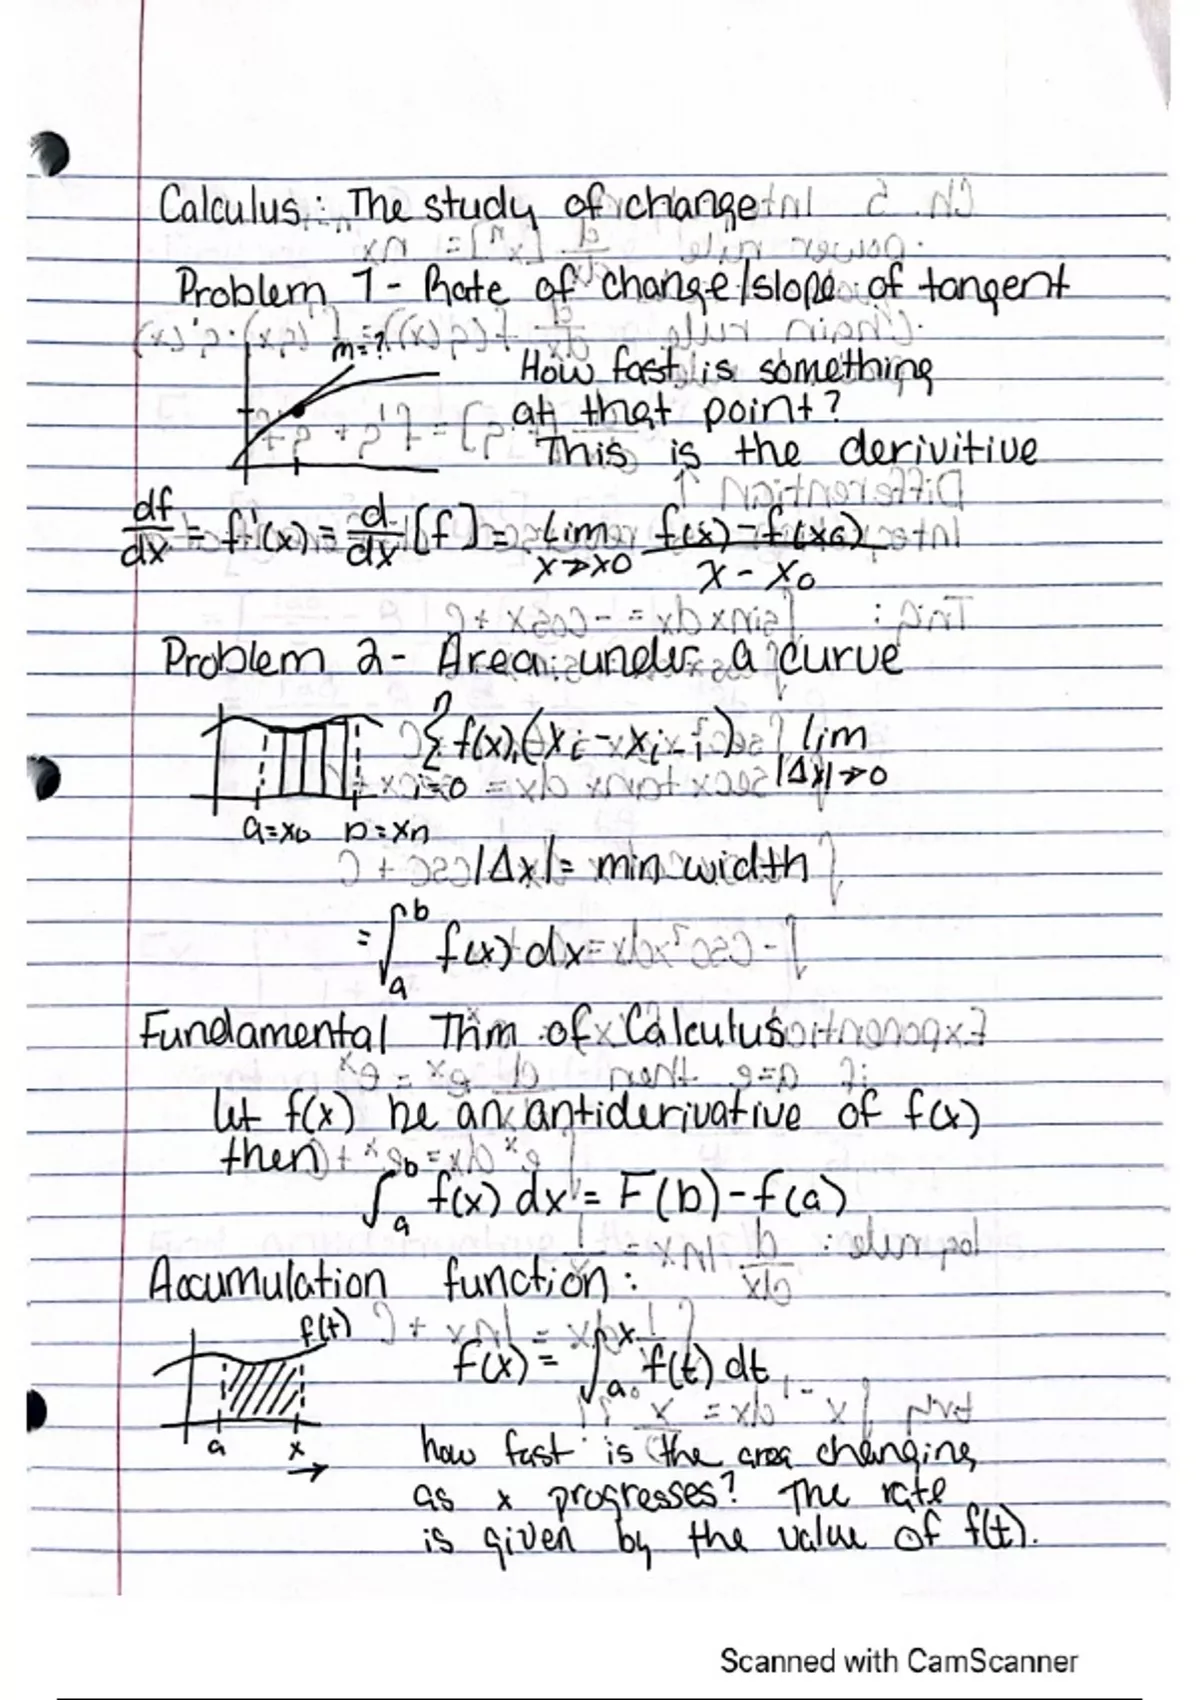 Calculus: The study of change
Problem 1 - Rate of change/slope of tangent
m=?
How fast is something
at that point?
This is the derivitive
df/dx = f'(x) = d/dx [f] = lim x→x0 f(x)-f(x0) / x-x0
Problem 2 - Area under a curve
n Σ i=0 f(x)i(xi-xi-1) lim |Δx|→0
a=x0 b=xn
|Δx| = min width
= ∫ab f(x) dx
Fundamental Thm of Calculus
let f(x) be an antiderivative of f(x)
then
∫ab f(x) dx = F(b)-f(a)
Accumulation function:
f(t)
f(x) = ∫ax f(t) dt
a x
how fast is the area changing
as x progresses? The rate
is given by the value of f(t).
Scanned with CamScanner